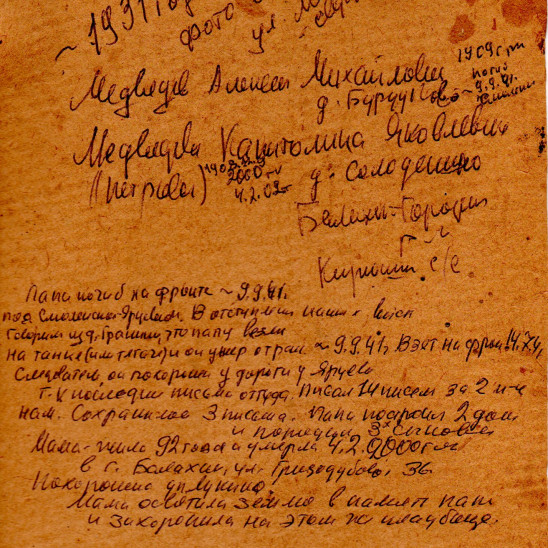 ~1931 год
фото
ул.
Медведев Алексей Михайлович 1909 г.р.
д. Бурцуново погиб ~9.9.41.
Медведева Капитолина Яковлевна
(Петрова) 2000 г. 4.2.
д. Солоденино
Балахн. Городец
Папа погиб на фронте ~ 9.9.41.
под Смоленском-Ярцевом. В отступлении наших войск
Говорил из д. Гранины, что папу везли
на танке (или тягаче) и он умер от ран. ~ 9.9.41. Взят на фронт
Следоват. он похоронен у дороги у Ярцево
Т.к. последнее письмо оттуда. Писал 14 писем за 2 м-ца
нам. Сохранилось 3 письма. Папа построил 2 дома
и породил 3х сыновей
Мама жила 92 года и умерла 4.2.2000 года
в г. Балахне, ул. Гризодубовой, 36.
Похоронена
Мама освятила землю в память папы
и захоронила на этом же кладбище.